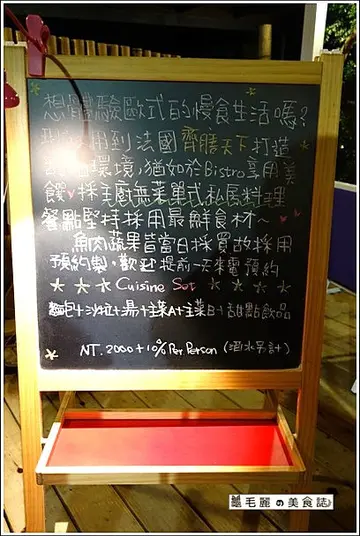 想體驗歐式的慢食生活嗎?
用到法國齊膳天下打造
環境,猶如於Bistro享用美
饌♥採主廚無菜單式私房料理
餐點堅持採用最鮮食材~
魚肉蔬果皆當日採買故採用
預約製,歡迎提前一天來電預約
☆ ☆ ☆ Cuisine Set ☆ ☆ ☆ ☆
麵包+沙拉+湯+主菜A+主菜B+甜點飲品
NT. 2000+10% Per Person (酒水另計)
毛麗の美食誌